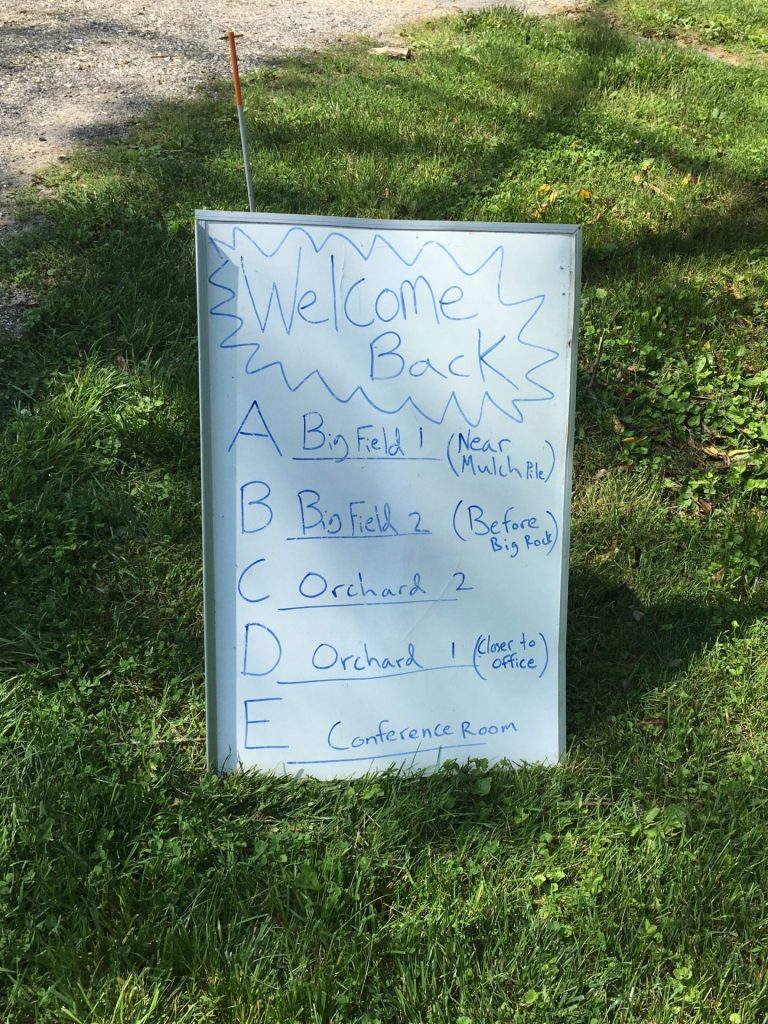 Welcome
Back
A Big Field 1 (Near
Mulch Pile)
B Big Field 2 (Before
Big Rock)
C Orchard 2
D Orchard 1 (Closer to
office)
E Conference Room